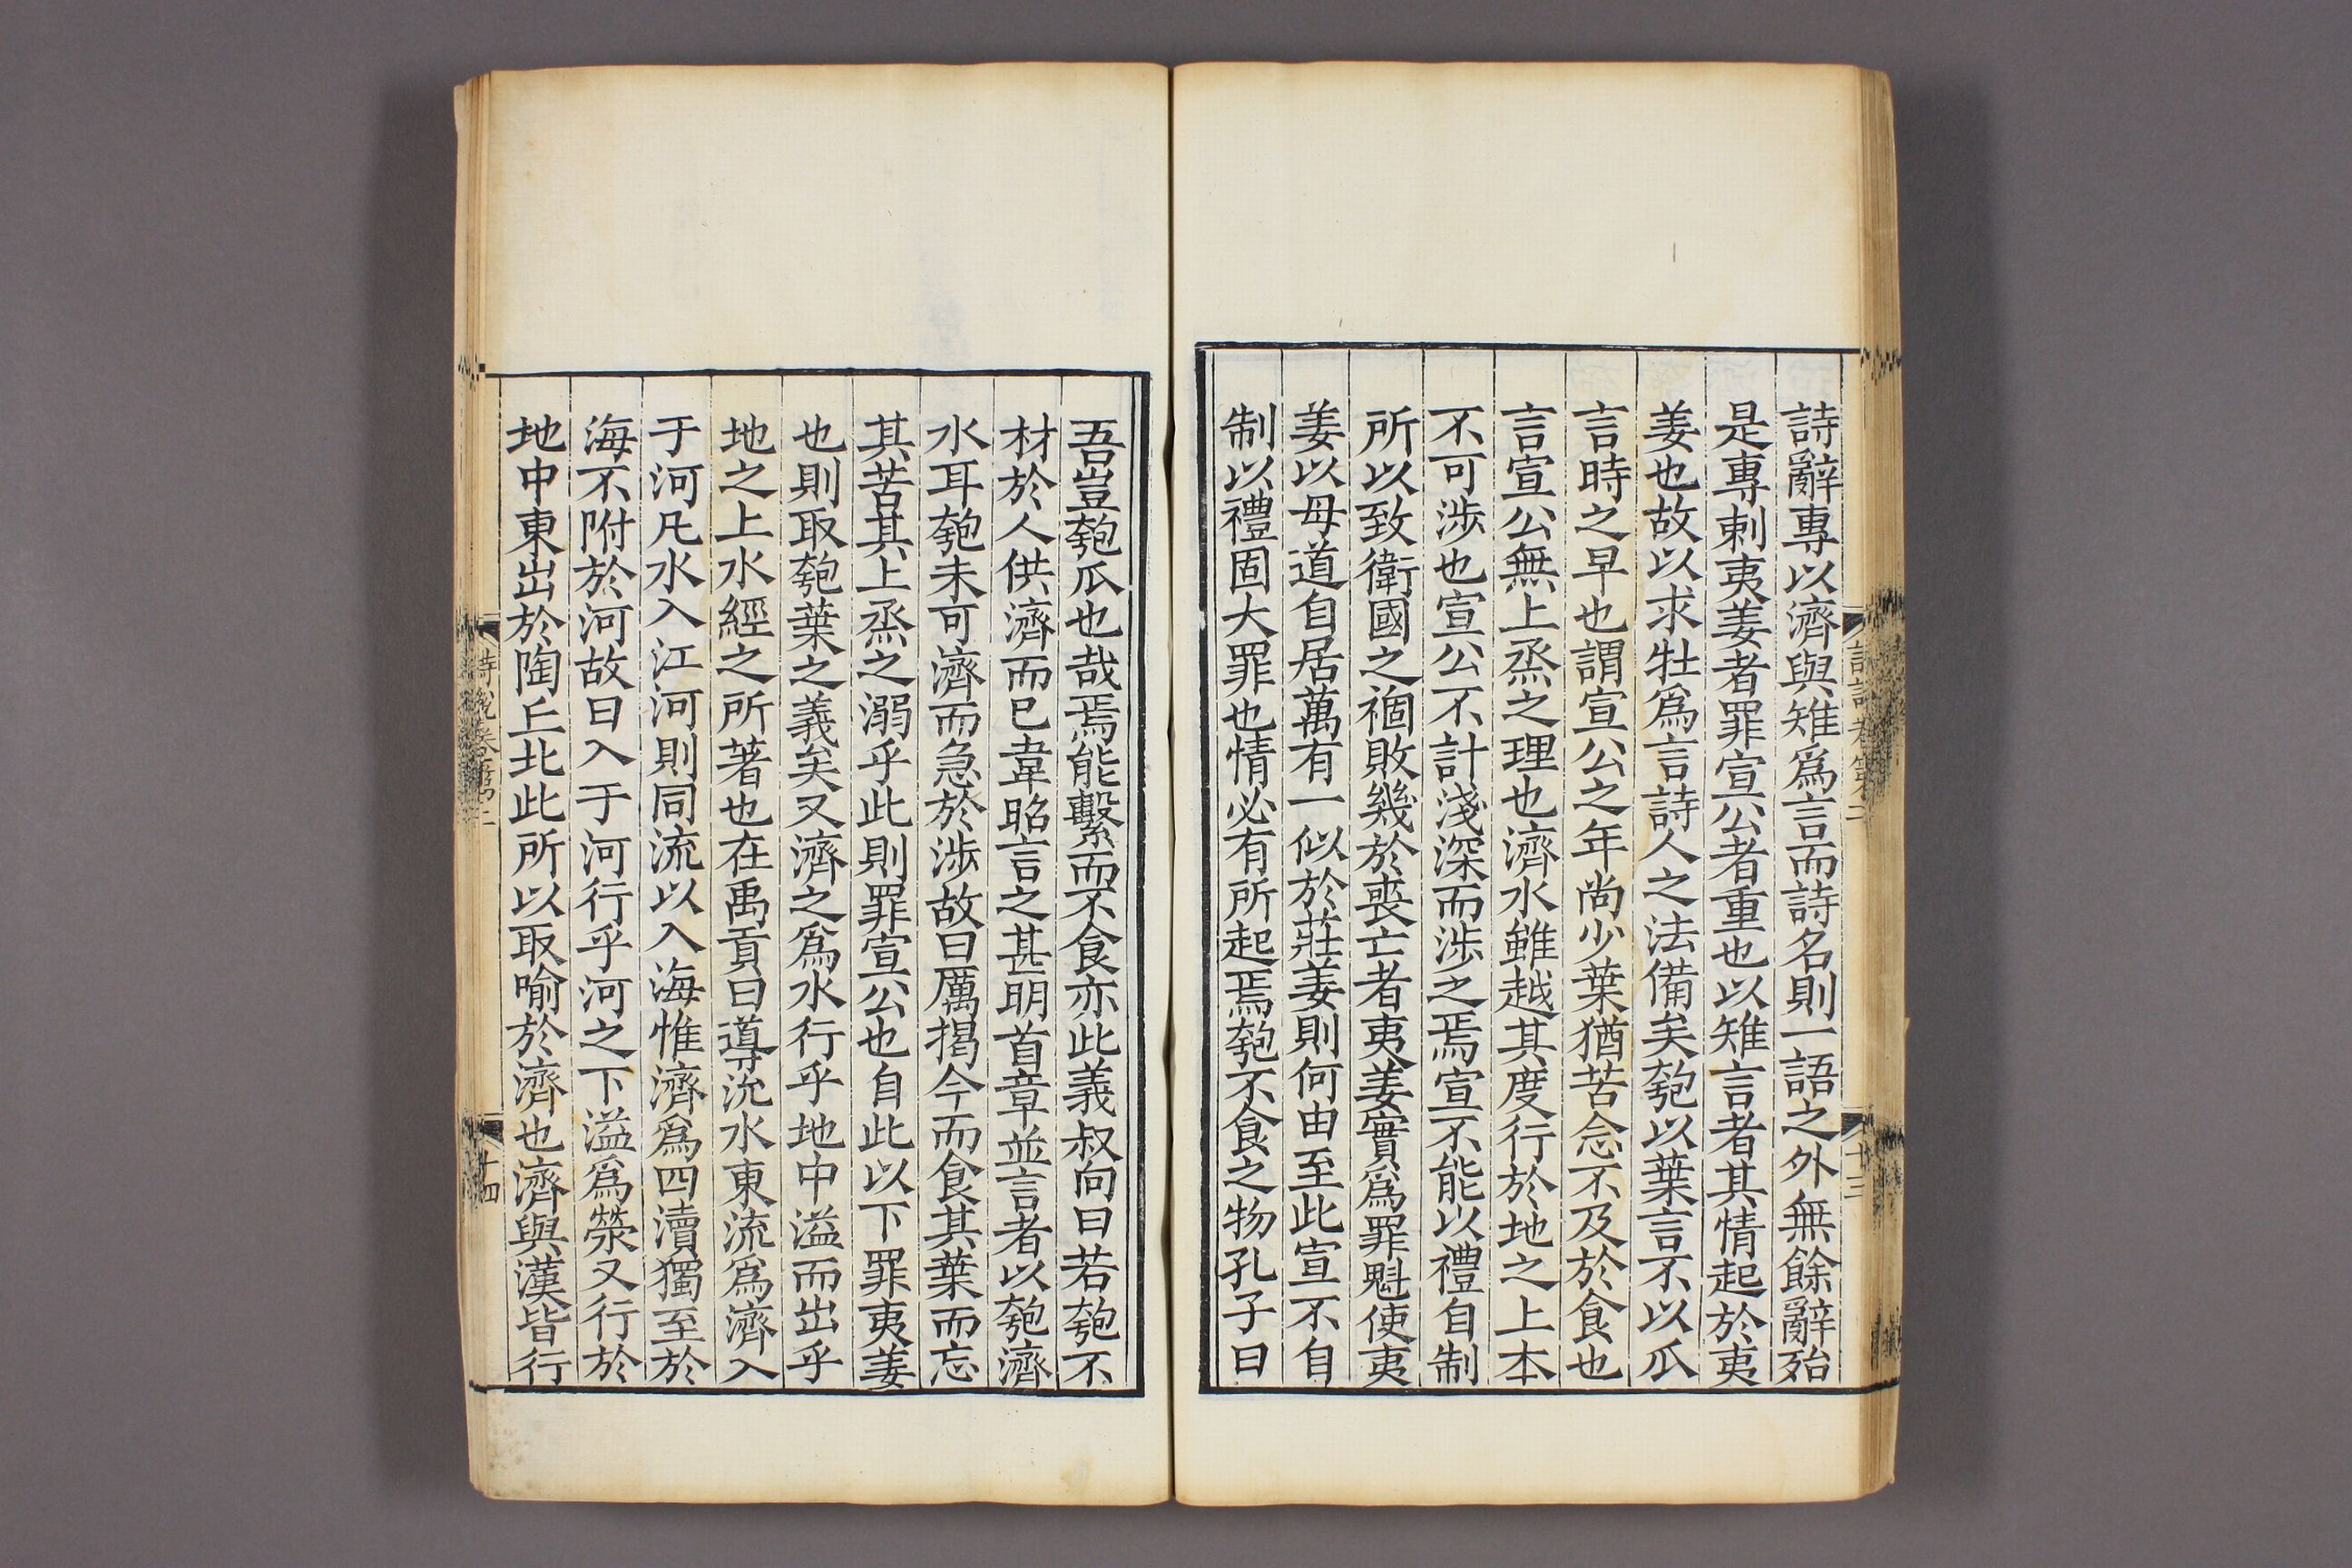 詩辭專以濟與雉爲言而詩名則一語之外無餘辭殆
是專刺夷姜者罪宣公者重也以雉言者其情起於夷
姜也故以求牡爲言詩人之法備矣匏以葉言不以瓜
言時之早也謂宣公之年尚少葉猶苦念不及於食也
言宣公無上烝之理也濟水雖越其度行於地之上本
不可涉也宣公不計淺深而涉之焉宣不能以禮自制
所以致衛國之禍敗幾於喪亡者夷姜實爲罪魁使夷
姜以母道自居萬有一似於莊姜則何由至此宣不自
制以禮固大罪也情必有所起焉匏不食之物孔子曰
吾豈匏瓜也哉焉能繫而不食亦此義叔向曰若匏不
材於人供濟而已韋昭言之甚明首章並言者以匏濟
水耳匏未可濟而急於涉故曰厲揭今而食其葉而忘
其苦其上烝之溺乎此則罪宣公也自此以下罪夷姜
也則取匏葉之義矣又濟之爲水行乎地中溢而出乎
地之上水經之所著也在禹貢曰導沇水東流爲濟入
于河凡水入江河則同流以入海惟濟爲四瀆獨至於
海不附於河故曰入于河行乎河之下溢爲滎又行於
地中東出於陶丘北此所以取喻於濟也濟與漢皆行
詩說卷第二
十四
十三